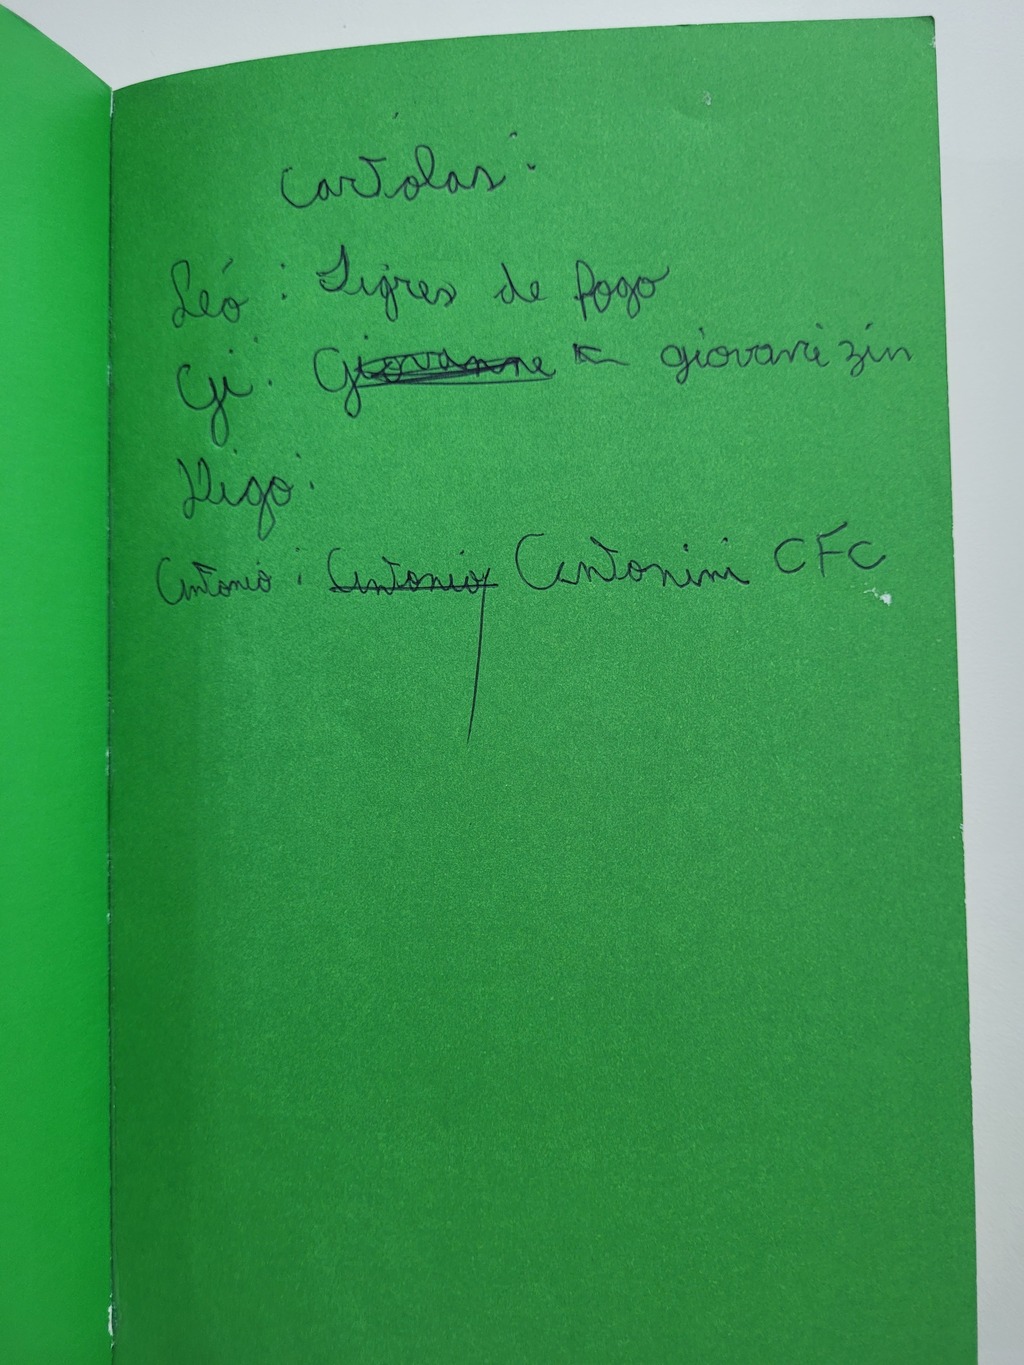 Cartolas:
Léo: Tigres de fogo
Gi: Giovanne ← giovanezin
Higo:
Antonio: Antonio Antonini CFC